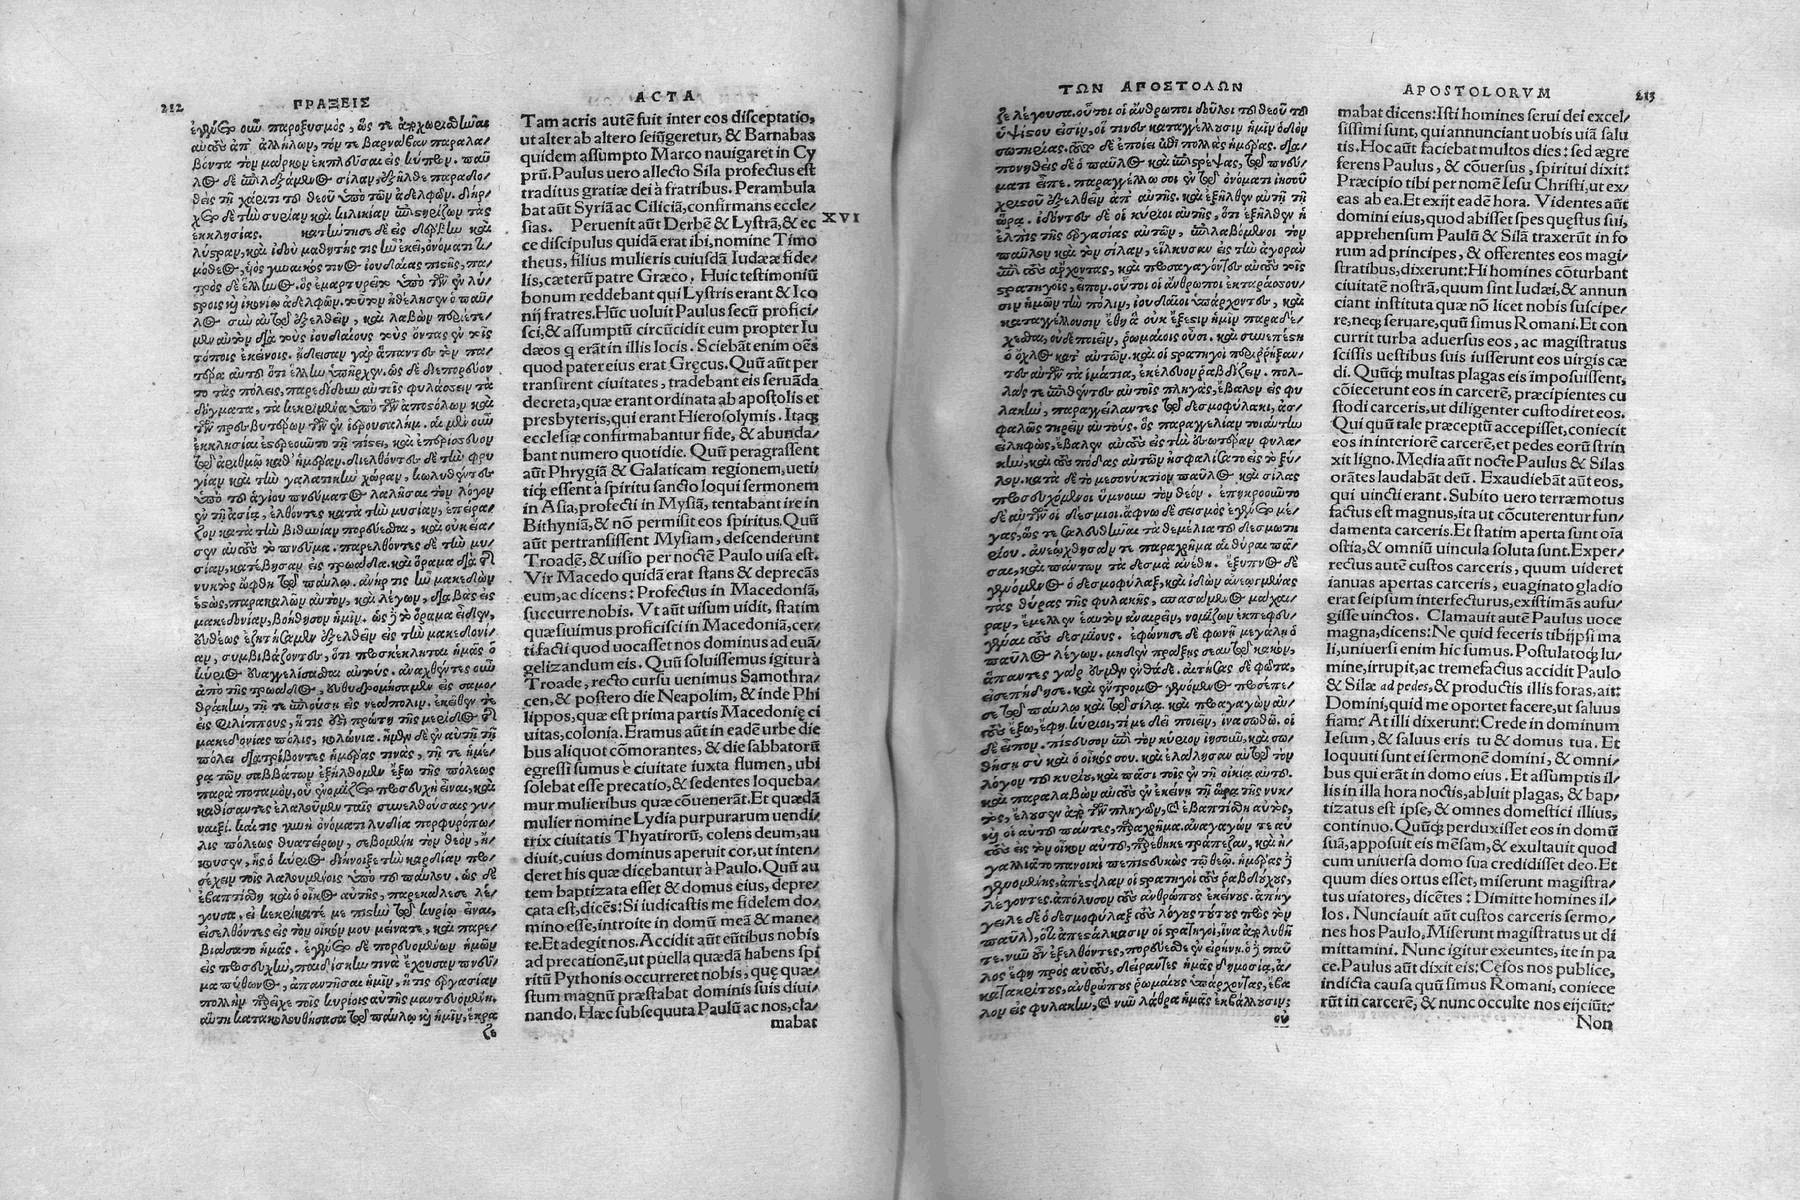 212 ΠΡΑΞΕΙΣ
ἐγένετο οὖν παροξυσμὸς, ὥς τε ἀποχωρισθῆναι
αὐτοὺς ἀπ' ἀλλήλων, τόν τε βαρνάβαν παραλα/
βόντα τὸν μάρκον ἐκπλεῦσαι εἰς κύπρον. παῦ
λος δὲ ἐπιλεξάμενος σίλαν, ἐξῆλθε παραδο/
θεὶς τῇ χάριτι τοῦ θεοῦ ὑπὸ τῶν ἀδελφῶν. διήρ/
χετο δὲ τὴν συρίαν καὶ κιλικίαν ἐπιστηρίζων τὰς
ἐκκλησίας. κατήντησε δὲ εἰς δέρβην καὶ
λύστραν, καὶ ἰδοὺ μαθητής τις ἦν ἐκεῖ, ὀνόματι τι/
μόθεος, υἱὸς γυναικός τινος ἰουδαίας πιστῆς, πα/
τρὸς δὲ ἕλληνος. ὃς ἐμαρτυρεῖτο ὑπὸ τῶν ἐν λύ/
στροις καὶ ἰκονίῳ ἀδελφῶν. τοῦτον ἠθέλησεν ὁ παῦ/
λος σὺν αὐτῷ ἐξελθεῖν, καὶ λαβὼν περιέτε/
μεν αὐτὸν διὰ τοὺς ἰουδαίους τοὺς ὄντας ἐν τοῖς
τόποις ἐκείνοις. ᾔδεισαν γὰρ ἅπαντες τὸν πα/
τέρα αὐτοῦ ὅτι ἕλλην ὑπῆρχεν. ὡς δὲ διεπορεύον
το τὰς πόλεις, παρεδίδουν αὐτοῖς φυλάσσειν τὰ
δόγματα, τὰ κεκριμένα ὑπὸ τῶν ἀποστόλων καὶ
τῶν πρεσβυτέρων τῶν ἐν ἱερουσαλήμ. αἱ μὲν οὖν
ἐκκλησίαι ἐστερεοῦντο τῇ πίστει, καὶ ἐπερίσσευον
τῷ ἀριθμῷ καθ' ἡμέραν. διελθόντες δὲ τὴν φρυ
γίαν καὶ τὴν γαλατικὴν χώραν, κωλυθέντες
ὑπὸ τοῦ ἁγίου πνεύματος λαλῆσαι τὸν λόγον
ἐν τῇ ἀσίᾳ, ἐλθόντες κατὰ τὴν μυσίαν, ἐπείρα/
ζον κατὰ τὴν βιθυνίαν πορεύεσθαι, καὶ οὐκ εἴα/
σεν αὐτοὺς τὸ πνεῦμα. παρελθόντες δὲ τὴν μυ/
σίαν, κατέβησαν εἰς τρωάδα. καὶ ὅραμα διὰ τῆς
νυκτὸς ὤφθη τῷ παύλῳ. ἀνήρ τις ἦν μακεδὼν
ἑστὼς, παρακαλῶν αὐτὸν, καὶ λέγων, διαβὰς εἰς
μακεδονίαν, βοήθησον ἡμῖν. ὡς δὲ τὸ ὅραμα εἶδεν,
εὐθέως ἐζητήσαμεν ἐξελθεῖν εἰς τὴν μακεδονί/
αν, συμβιβάζοντες, ὅτι προσκέκληται ἡμᾶς ὁ
κύριος εὐαγγελίσασθαι αὐτούς. ἀναχθέντες οὖν
ἀπὸ τῆς τρωάδος, εὐθυδρομήσαμεν εἰς σαμο/
θράκην, τῇ τε ἐπιούσῃ εἰς νεάπολιν. ἐκεῖθέν τε
εἰς φιλίππους, ἥ τις ἐστὶ πρώτη τῆς μερίδος τῆς
μακεδονίας πόλις, κολώνια. ἦμεν δὲ ἐν αὐτῇ τῇ
πόλει διατρίβοντες ἡμέρας τινὰς, τῇ τε ἡμέ/
ρᾳ τῶν σαββάτων ἐξήλθομεν ἔξω τῆς πόλεως
παρὰ ποταμὸν, οὗ ἐνομίζετο προσευχὴ εἶναι, καὶ
καθίσαντες ἐλαλοῦμεν ταῖς συνελθούσαις γυ/
ναιξί. καί τις γυνὴ ὀνόματι λυδία πορφυρόπω/
λις πόλεως θυατείρων, σεβομένη τὸν θεὸν, ἤ/
κουσεν, ἧς ὁ κύριος διήνοιξε τὴν καρδίαν προ/
σέχειν τοῖς λαλουμένοις ὑπὸ τοῦ παύλου. ὡς δὲ
ἐβαπτίσθη καὶ ὁ οἶκος αὐτῆς, παρεκάλεσε λέ/
γουσα. εἰ κεκρίκατέ με πιστὴν τῷ κυρίῳ εἶναι,
εἰσελθόντες εἰς τὸν οἶκόν μου μείνατε, καὶ παρε/
βιάσατο ἡμᾶς. ἐγένετο δὲ πορευομένων ἡμῶν
εἰς προσευχὴν, παιδίσκην τινὰ ἔχουσαν πνεῦ/
μα πύθωνος, ἀπαντῆσαι ἡμῖν, ἥ τις ἐργασίαν
πολλὴν παρεῖχε τοῖς κυρίοις αὐτῆς μαντευομένη.
αὕτη κατακολουθήσασα τῷ παύλῳ καὶ ἡμῖν, ἔκρα
ζε
ACTA
Tam acris autē fuit inter eos disceptatio,
ut alter ab altero seiūgeretur, & Barnabas
quidem assumpto Marco nauigaret in Cy
prū. Paulus uero allecto Sila profectus est
traditus gratiæ dei à fratribus. Perambula
bat aūt Syriā ac Ciliciā, confirmans eccle/
sias. Peruenit aūt Derbē & Lystrā, & ec
XVI
ce discipulus quidā erat ibi, nomine Timo
theus, filius mulieris cuiusdā Iudææ fide/
lis, cæterū patre Græco. Huic testimoniū
bonum reddebant qui Lystris erant & Ico
nij fratres. Hūc uoluit Paulus secū profici/
sci, & assumptū circūcidit eum propter Iu
dæos q erāt in illis locis. Sciebāt enim oēs
quod pater eius erat Gręcus. Quū aūt per
transirent ciuitates, tradebant eis seruāda
decreta, quæ erant ordinata ab apostolis et
presbyteris, qui erant Hierosolymis. Itaq;
ecclesiæ confirmabantur fide, & abunda/
bant numero quotidie. Quū peragrassent
aūt Phrygiā & Galaticam regionem, ueti/
tiq; essent à spiritu sancto loqui sermonem
in Asia, profecti in Mysiā, tentabant ire in
Bithyniā, & nō permisit eos spiritus. Quū
aūt pertransissent Mysiam, descenderunt
Troadē, & uisio per noctē Paulo uisa est.
Vir Macedo quidā erat stans & deprecās
eum, ac dicens: Profectus in Macedoniā,
succurre nobis. Vt aūt uisum uidit, statim
quæsiuimus proficisci in Macedoniā, cer/
ti facti quod uocasset nos dominus ad euā/
gelizandum eis. Quū soluissemus igitur à
Troade, recto cursu uenimus Samothra/
cen, & postero die Neapolim, & inde Phi
lippos, quæ est prima partis Macedonię ci
uitas, colonia. Eramus aūt in eadē urbe die
bus aliquot cōmorantes, & die sabbatorū
egressi sumus è ciuitate iuxta flumen, ubi
solebat esse precatio, & sedentes loqueba/
mur mulieribus quæ cōuenerāt. Et quædā
mulier nomine Lydia purpurarum uendi/
trix ciuitatis Thyatirorū, colens deum, au
diuit, cuius dominus aperuit cor, ut inten/
deret his quæ dicebantur à Paulo. Quū au
tem baptizata esset & domus eius, depre/
cata est, dicēs: Si iudicastis me fidelem do/
mino esse, introite in domū meā & mane/
te. Et adegit nos. Accidit aūt eūtibus nobis
ad precationē, ut puella quædā habens spi
ritū Pythonis occurreret nobis, quę quæ/
stum magnū præstabat dominis suis diui/
nando. Hæc subsequuta Paulū ac nos, cla/
mabat
ΤΩΝ ΑΠΟΣΤΟΛΩΝ
ζε λέγουσα. οὗτοι οἱ ἄνθρωποι δοῦλοι τοῦ θεοῦ τοῦ
ὑψίστου εἰσὶν, οἵ τινες καταγγέλλουσιν ἡμῖν ὁδὸν
σωτηρίας. τοῦτο δὲ ἐποίει ἐπὶ πολλὰς ἡμέρας. δια/
πονηθεὶς δὲ ὁ παῦλος καὶ ἐπιστρέψας, τῷ πνεύ/
ματι εἶπε. παραγγέλλω σοι ἐν τῷ ὀνόματι ἰησοῦ
χριστοῦ ἐξελθεῖν ἀπ' αὐτῆς. καὶ ἐξῆλθεν αὐτῇ τῇ
ὥρᾳ. ἰδόντες δὲ οἱ κύριοι αὐτῆς, ὅτι ἐξῆλθεν ἡ
ἐλπὶς τῆς ἐργασίας αὐτῶν, ἐπιλαβόμενοι τὸν
παῦλον καὶ τὸν σίλαν, εἵλκυσαν εἰς τὴν ἀγορὰν
ἐπὶ τοὺς ἄρχοντας, καὶ προσαγαγόντες αὐτοὺς τοῖς
στρατηγοῖς, εἶπον. οὗτοι οἱ ἄνθρωποι ἐκταράσσου/
σιν ἡμῶν τὴν πόλιν, ἰουδαῖοι ὑπάρχοντες, καὶ
καταγγέλλουσιν ἔθη ἃ οὐκ ἔξεστιν ἡμῖν παραδέ/
χεσθαι, οὐδὲ ποιεῖν, ῥωμαίοις οὖσι. καὶ συνεπέστη
ὁ ὄχλος κατ' αὐτῶν. καὶ οἱ στρατηγοὶ περιρρήξαν/
τες αὐτῶν τὰ ἱμάτια, ἐκέλευον ῥαβδίζειν. πολ/
λάς τε ἐπιθέντες αὐτοῖς πληγὰς, ἔβαλον εἰς φυ
λακὴν, παραγγείλαντες τῷ δεσμοφύλακι, ἀσ/
φαλῶς τηρεῖν αὐτούς. ὃς παραγγελίαν τοιαύτην
εἰληφὼς, ἔβαλεν αὐτοὺς εἰς τὴν ἐσωτέραν φυλα/
κὴν, καὶ τοὺς πόδας αὐτῶν ἠσφαλίσατο εἰς τὸ ξύ/
λον. κατὰ δὲ τὸ μεσονύκτιον παῦλος καὶ σίλας
προσευχόμενοι ὕμνουν τὸν θεόν. ἐπηκροῶντο
δὲ αὐτῶν οἱ δέσμιοι. ἄφνω δὲ σεισμὸς ἐγένετο μέ/
γας, ὥς τε σαλευθῆναι τὰ θεμέλια τοῦ δεσμωτη
ρίου. ἀνεῴχθησάν τε παραχρῆμα αἱ θύραι πᾶ/
σαι, καὶ πάντων τὰ δεσμὰ ἀνέθη. ἔξυπνος δὲ
γενόμενος ὁ δεσμοφύλαξ, καὶ ἰδὼν ἀνεῳγμένας
τὰς θύρας τῆς φυλακῆς, σπασάμενος μάχαι/
ραν, ἔμελλεν ἑαυτὸν ἀναιρεῖν, νομίζων ἐκπεφευ/
γέναι τοὺς δεσμίους. ἐφώνησε δὲ φωνῇ μεγάλῃ ὁ
παῦλος λέγων. μηδὲν πράξῃς σεαυτῷ κακὸν,
ἅπαντες γάρ ἐσμεν ἐνθάδε. αἰτήσας δὲ φῶτα,
εἰσεπήδησε. καὶ ἔντρομος γενόμενος προσέπε/
σε τῷ παύλῳ καὶ τῷ σίλᾳ. καὶ προαγαγὼν αὐ/
τοὺς ἔξω, ἔφη. κύριοι, τί με δεῖ ποιεῖν, ἵνα σωθῶ. οἱ
δὲ εἶπον. πίστευσον ἐπὶ τὸν κύριον ἰησοῦν, καὶ σω/
θήσῃ σὺ καὶ ὁ οἶκός σου. καὶ ἐλάλησαν αὐτῷ τὸν
λόγον τοῦ κυρίου, καὶ πᾶσι τοῖς ἐν τῇ οἰκίᾳ αὐτοῦ.
καὶ παραλαβὼν αὐτοὺς ἐν ἐκείνῃ τῇ ὥρᾳ τῆς νυκ/
τὸς, ἔλουσεν ἀπὸ τῶν πληγῶν, καὶ ἐβαπτίσθη αὐτὸς,
καὶ οἱ αὐτοῦ πάντες, παραχρῆμα. ἀναγαγών τε αὐ
τοὺς εἰς τὸν οἶκον αὐτοῦ, παρέθηκε τράπεζαν, καὶ ἠ/
γαλλιᾶτο πανοικὶ πεπιστευκὼς τῷ θεῷ. ἡμέρας δὲ
γενομένης, ἀπέστειλαν οἱ στρατηγοὶ τοὺς ῥαβδούχους,
λέγοντες. ἀπόλυσον τοὺς ἀνθρώπους ἐκείνους. ἀπήγ
γειλε δὲ ὁ δεσμοφύλαξ τοὺς λόγους τούτους πρὸς τὸν
παῦλον, ὅτι ἀπεστάλκασιν οἱ στρατηγοὶ, ἵνα ἀπολυθῆ
τε. νῦν οὖν ἐξελθόντες, πορεύεσθε ἐν εἰρήνῃ. ὁ δὲ παῦ
λος ἔφη πρὸς αὐτοὺς, δείραντες ἡμᾶς δημοσίᾳ, ἀ/
κατακρίτους, ἀνθρώπους ῥωμαίους ὑπάρχοντας, ἔβα
λον εἰς φυλακὴν, καὶ νῦν λάθρα ἡμᾶς ἐκβάλλουσιν;
οὐ
APOSTOLORVM 213
mabat dicens: Isti homines serui dei excel/
sissimi sunt, qui annunciant uobis uiā salu
tis. Hoc aūt faciebat multos dies: sed ægre
ferens Paulus, & cōuersus, spiritui dixit:
Præcipio tibi per nomē Iesu Christi, ut ex/
eas ab ea. Et exijt eadē hora. Videntes aūt
domini eius, quod abisset spes quęstus sui,
apprehensum Paulū & Silā traxerūt in fo
rum ad principes, & offerentes eos magi/
stratibus, dixerunt: Hi homines cōturbant
ciuitatē nostrā, quum sint Iudæi, & annun
ciant instituta quæ nō licet nobis suscipe/
re, neq; seruare, quū simus Romani. Et con
currit turba aduersus eos, ac magistratus
scissis uestibus suis iusserunt eos uirgis cæ
di. Quūq; multas plagas eis imposuissent,
cōiecerunt eos in carcerē, præcipientes cu
stodi carceris, ut diligenter custodiret eos.
Qui quū tale præceptū accepisset, coniecit
eos in interiorē carcerē, et pedes eorū strin
xit ligno. Media aūt nocte Paulus & Silas
orātes laudabāt deū. Exaudiebāt aūt eos,
qui uincti erant. Subito uero terræmotus
factus est magnus, ita ut cōcuterentur fun/
damenta carceris. Et statim aperta sunt oīa
ostia, & omniū uincula soluta sunt. Exper/
rectus autē custos carceris, quum uideret
ianuas apertas carceris, euaginato gladio
erat seipsum interfecturus, existimās aufu/
gisse uinctos. Clamauit autē Paulus uoce
magna, dicens: Ne quid feceris tibijpsi ma
li, uniuersi enim hic sumus. Postulatoq; lu/
mine, irrupit, ac tremefactus accidit Paulo
& Silæ ad pedes, & productis illis foras, ait:
Domini, quid me oportet facere, ut saluus
fiam? At illi dixerunt: Crede in dominum
Iesum, & saluus eris tu & domus tua. Et
loquuti sunt ei sermonē domini, & omni/
bus qui erāt in domo eius. Et assumptis il/
lis in illa hora noctis, abluit plagas, & bap/
tizatus est ipse, & omnes domestici illius,
continuo. Quūq; perduxisset eos in domū
suā, apposuit eis mēsam, & exultauit quod
cum uniuersa domo sua credidisset deo. Et
quum dies ortus esset, miserunt magistra/
tus uiatores, dicētes: Dimitte homines il/
los. Nunciauit aūt custos carceris sermo/
nes hos Paulo, Miserunt magistratus ut di
mittamini. Nunc igitur exeuntes, ite in pa
ce. Paulus aūt dixit eis: Cęsos nos publice,
indicta causa quū simus Romani, coniece
rūt in carcerē, & nunc occulte nos eijciūt?
Non